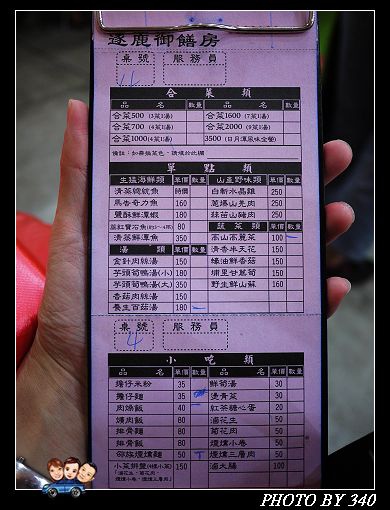 逐鹿御饍房
桌號 服務員
4
合菜類
品名 數量 品名 數量
合菜500 (3菜1湯) 合菜1600 (7菜1湯)
合菜700 (4菜1湯) 合菜2000 (9菜1湯)
合菜1000 (4菜1湯) 3500 (日月潭風味全餐)
單點類
生猛海鮮類 單價 數量 山產野味類 單價 數量
清蒸總統魚 時價 白斬水晶雞 250
馬告奇力魚 160 蔥爆山羌肉 250
鹽酥鮮潭蝦 180 蒜苗山豬肉 250
蔬菜類 單價 數量
清蒸鮮潭魚 350 高山高麗菜 100
湯類 單價 數量 清香半天花 150
金針肉絲湯 150 蠔油鮮香菇 150
芋頭筍鴨湯(小) 180 埔里甘蔗筍 150
芋頭筍鴨湯(大) 350 野生鮮山蘇 160
香菇肉絲湯 150
養生百菇湯 180
桌號 服務員
4
小吃類
品名 單價 數量 品名 單價 數量
擔仔米粉 35 鮮筍湯 30
擔仔麵 35 燙青菜 30
肉燥飯 40 紅茶糖心蛋 20
爌肉飯 50 滷花生 50
排骨麵 80 菊花肉 50
排骨飯 80 煙燻小卷 50
邵族煙燻麵 50 煙燻三層肉 50
小菜拼盤(4樣小菜) 150 滷大腸 100
「滷花生、菊花肉、
煙燻小卷、煙燻三層肉」
PHOTO BY 340